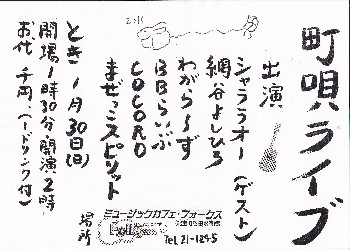 2011
町唄ライブ
出演
シャララオー(ゲスト)
網谷よしひろ
わがら〜ず
BBらいぶ
COCORO
まぜっこスピリット
とき 1月30日(日)
開場1時30分・開演2時
お代 千円、(1ドリンク付)
場所
ミュージックカフェ・フォークス
Tel 21-1245